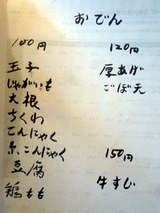 おでん
100円
玉子
じゃがいも
大根
ちくわ
こんにゃく
糸こんにゃく
豆腐
鶏もも
120円
厚あげ
ごぼ天
150円
牛すじ